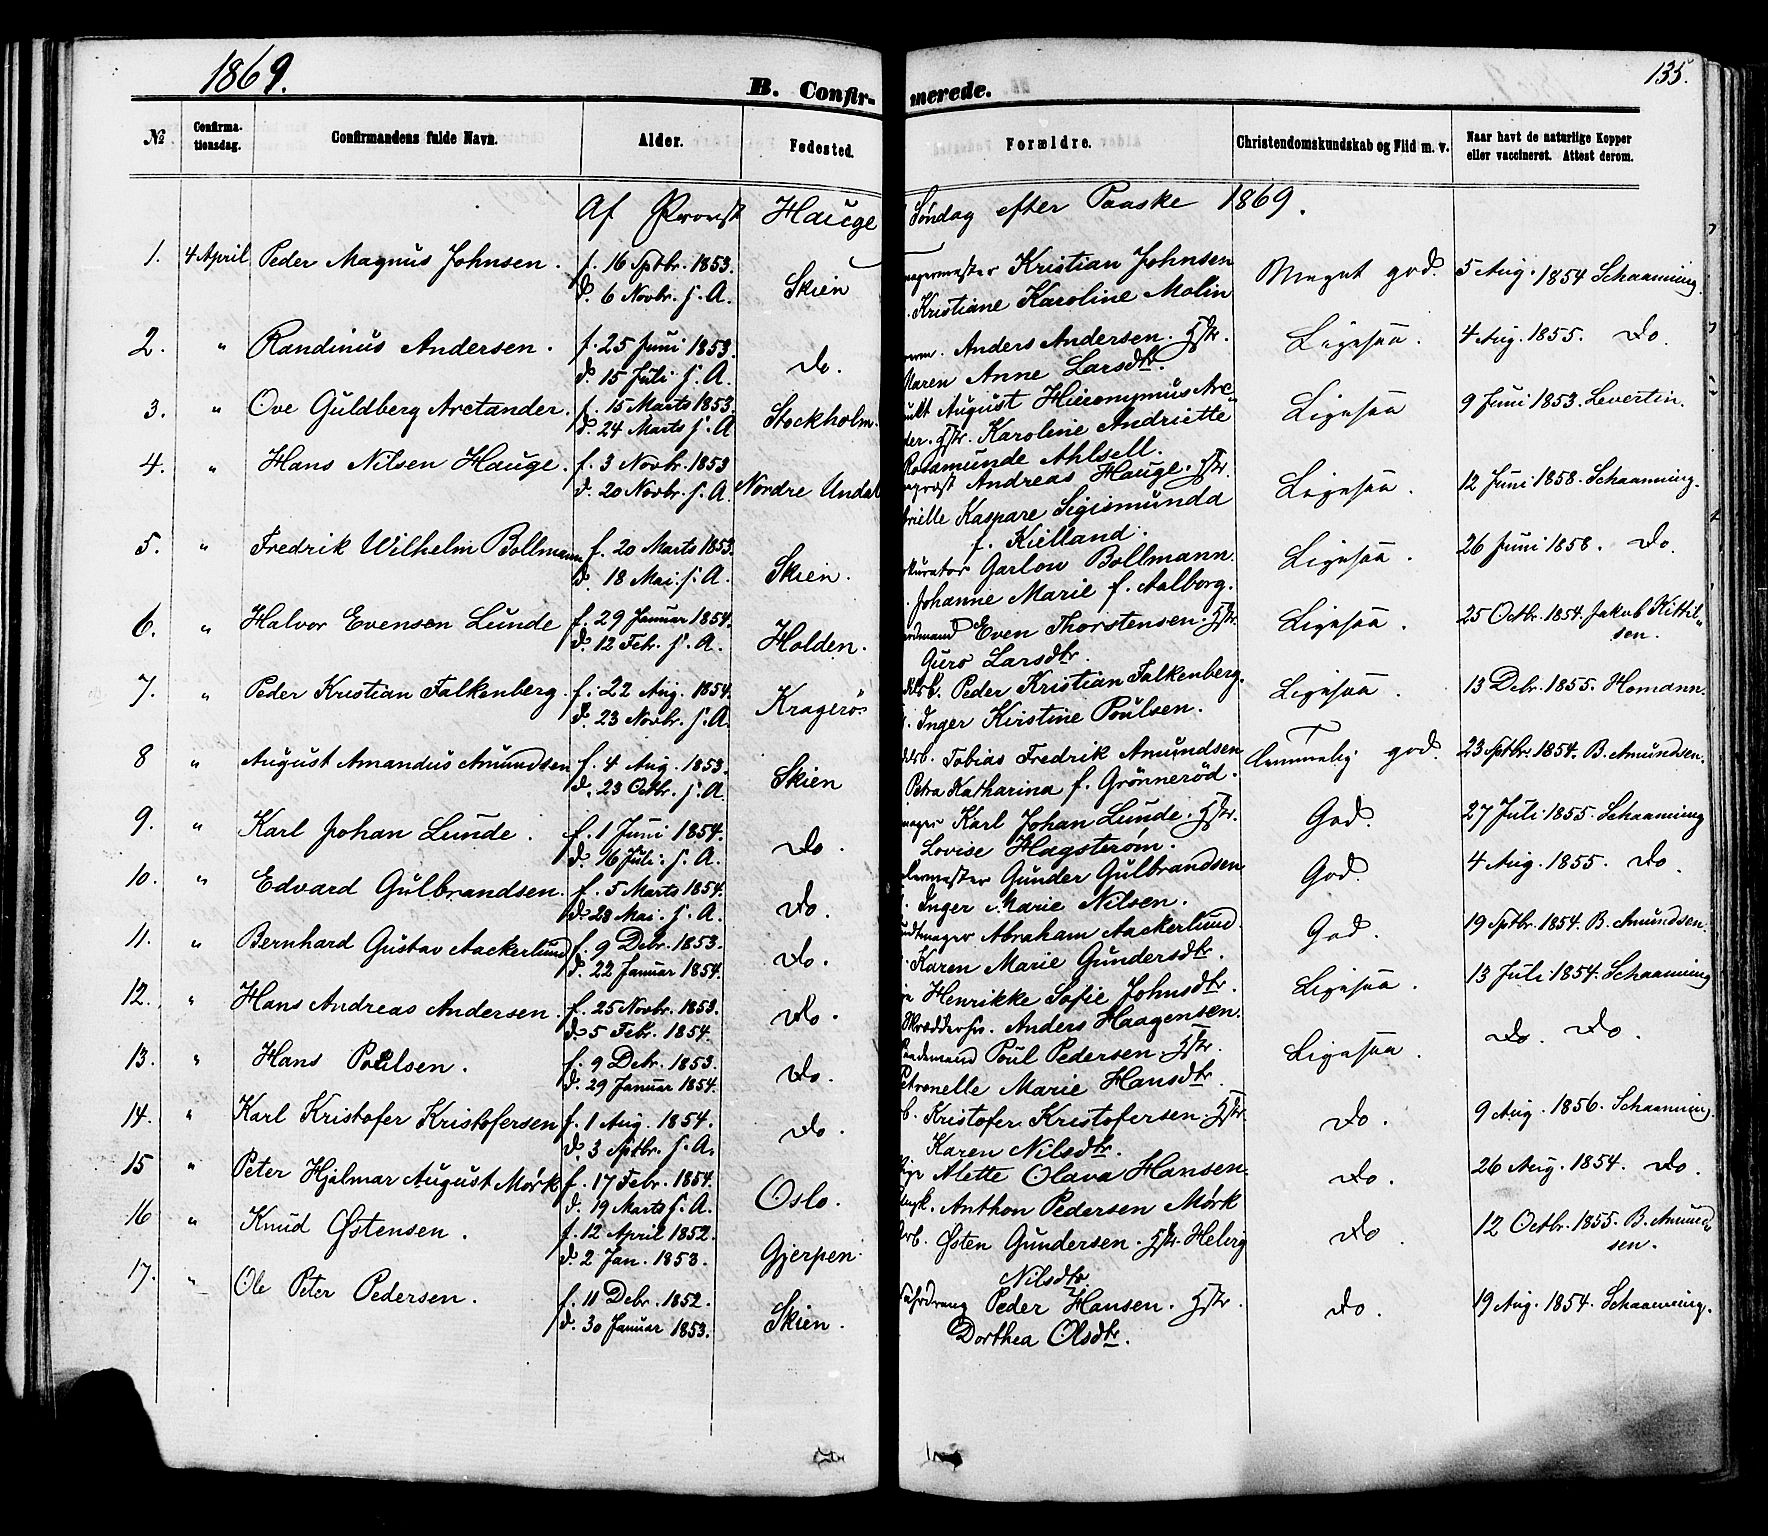 1869.
B. Confir- merede.
135.
№ Confirmationsdag. Confirmandens fulde Navn. Alder. Fødested. Forældre. Christendomskundskab og Flid m. v. Naar havt de naturlige Kopper eller vaccineret. Attest derom.
Af Provst Hauge Søndag efter Paaske 1869.
1. 4 April Peder Magnus Johnsen. f. 16 Sptbr. 1853. Kristian Johnsen Meget god. 5 Aug. 1854 Schaanning.
d. 6 Novbr. s. A. Skien Kristiane Karoline Molin
2. " Randinus Andersen. f. 25 Juni 1853. Anders Andersen. Hstr. Ligesaa. 4 Aug. 1855. Do.
d. 15 Juli s. A. Do. Maren Anne Larsdtr.
3. " Ove Guldberg Arctander. f. 15 Marts 1853. August Hieronymus Arc„ Ligesaa 9 Juni 1853. Levertin.
d. 24 Marts s. A Stockholm. der. Hstr. Karoline Andriette
Rosamunde Ahlsell.
4. " Hans Nilsen Hauge. f. 3 Novbr. 1853 Andreas Hauge. Hstr. Ligesaa. 12 Juni 1858. Schaanning.
d. 20 Novbr. s. A. Nordre Undal rielle Kaspare Sigismunda
f. Kielland.
5. " Fredrik Wilhelm Bollmann f. 20 Marts 1853. kurator Garlow Bollmann. Ligesaa. 26 Juni 1858. Do.
d. 18 Mai. s. A. Skien. Johanne Marie f. Aalborg.
6. " Halvor Evensen Lunde f. 29 Januar 1854. mand Even Thorstensen. Hstr. Ligesaa. 25 Octbr. 1854. Jakob Kittil„
d. 12 Febr. s. A. Holden. Guro Larsdtr. sen.
7. " Peder Kristian Falkenberg. f. 22 Aug. 1854. Peder Kristian Falkenberg. Ligesaa. 13 Debr. 1855. Homann.
d. 23 Novbr. s. A. Kragerø. Inger Kirstine Poulsen.
8 " August Amandus Amundsen f. 4 Aug. 1853. Tobias Fredrik Amundsen Temmelig god. 23 Sptbr. 1854. B. Amundsen.
d. 23 Octbr. s. A. Skien Petra Katharina f. Grønnerød.
9. " Karl Johan Lunde. f. 1 Juni 1854. mager Karl Johan Lunde. Hstr. God. 27 Juli 1855. Schaanning
d. 16 Juli. s. A. Do. Lovise Hagstrøm.
10. " Edvard Gulbrandsen. f. 5 Marts 1854. lermester Gunder Gulbrandsen God. 4 Aug. 1855. Do.
d. 28 Mai. s. A. Do. Inger Marie Nilsen.
11. " Bernhard Gustav Aackerlund f. 9 Debr. 1853. mager Abraham Aackerlund. God. 19 Sptbr. 1854. B. Amundsen.
d. 22 Januar 1854. Do. Karen Marie Gundersdtr.
12. " Hans Andreas Andersen. f. 25 Novbr. 1853. Henrikke Sofie Johnsdtr. Ligesaa. 13 Juli 1854. Schaanning
d. 5 Febr. 1854. Do. Anders Haagensen. Do. Do.
13. " Hans Poulsen. f. 9 Debr. 1853. mand Poul Pedersen. Hstr. Ligesaa.
d. 29 Januar 1854. Do. Petronelle Marie Hansdtr.
14. " Karl Kristofer Kristofersen f. 1 Aug. 1854. Kristofer Kristofersen. Hstr. Do. 9 Aug. 1856. Schaanning.
d. 3 Sptbr. s. A. Do. Karen Nilsdtr.
15 " Peter Hjalmar August Mørk f. 17 Febr. 1854. Alette Olava Hansen. Do. 26 Aug. 1854. Do.
d. 19 Marts s. A. Oslo. Anthon Pedersen Mørk
16 " Knud Østensen. f. 12 April 1852. Østen Gundersen. Hstr. Helvig Do. 12 Octbr. 1855. B. Amund„
d. 2 Jan. 1853. Gjerpen. Nilsdtr. sen.
17. " Ole Peter Pedersen. f. 11 Debr. 1852. Peder Hansen. Hstr. Do. 19 Aug. 1854. Schaanning.
d. 30 Januar 1853. Skien. Dorthea Olsdtr.